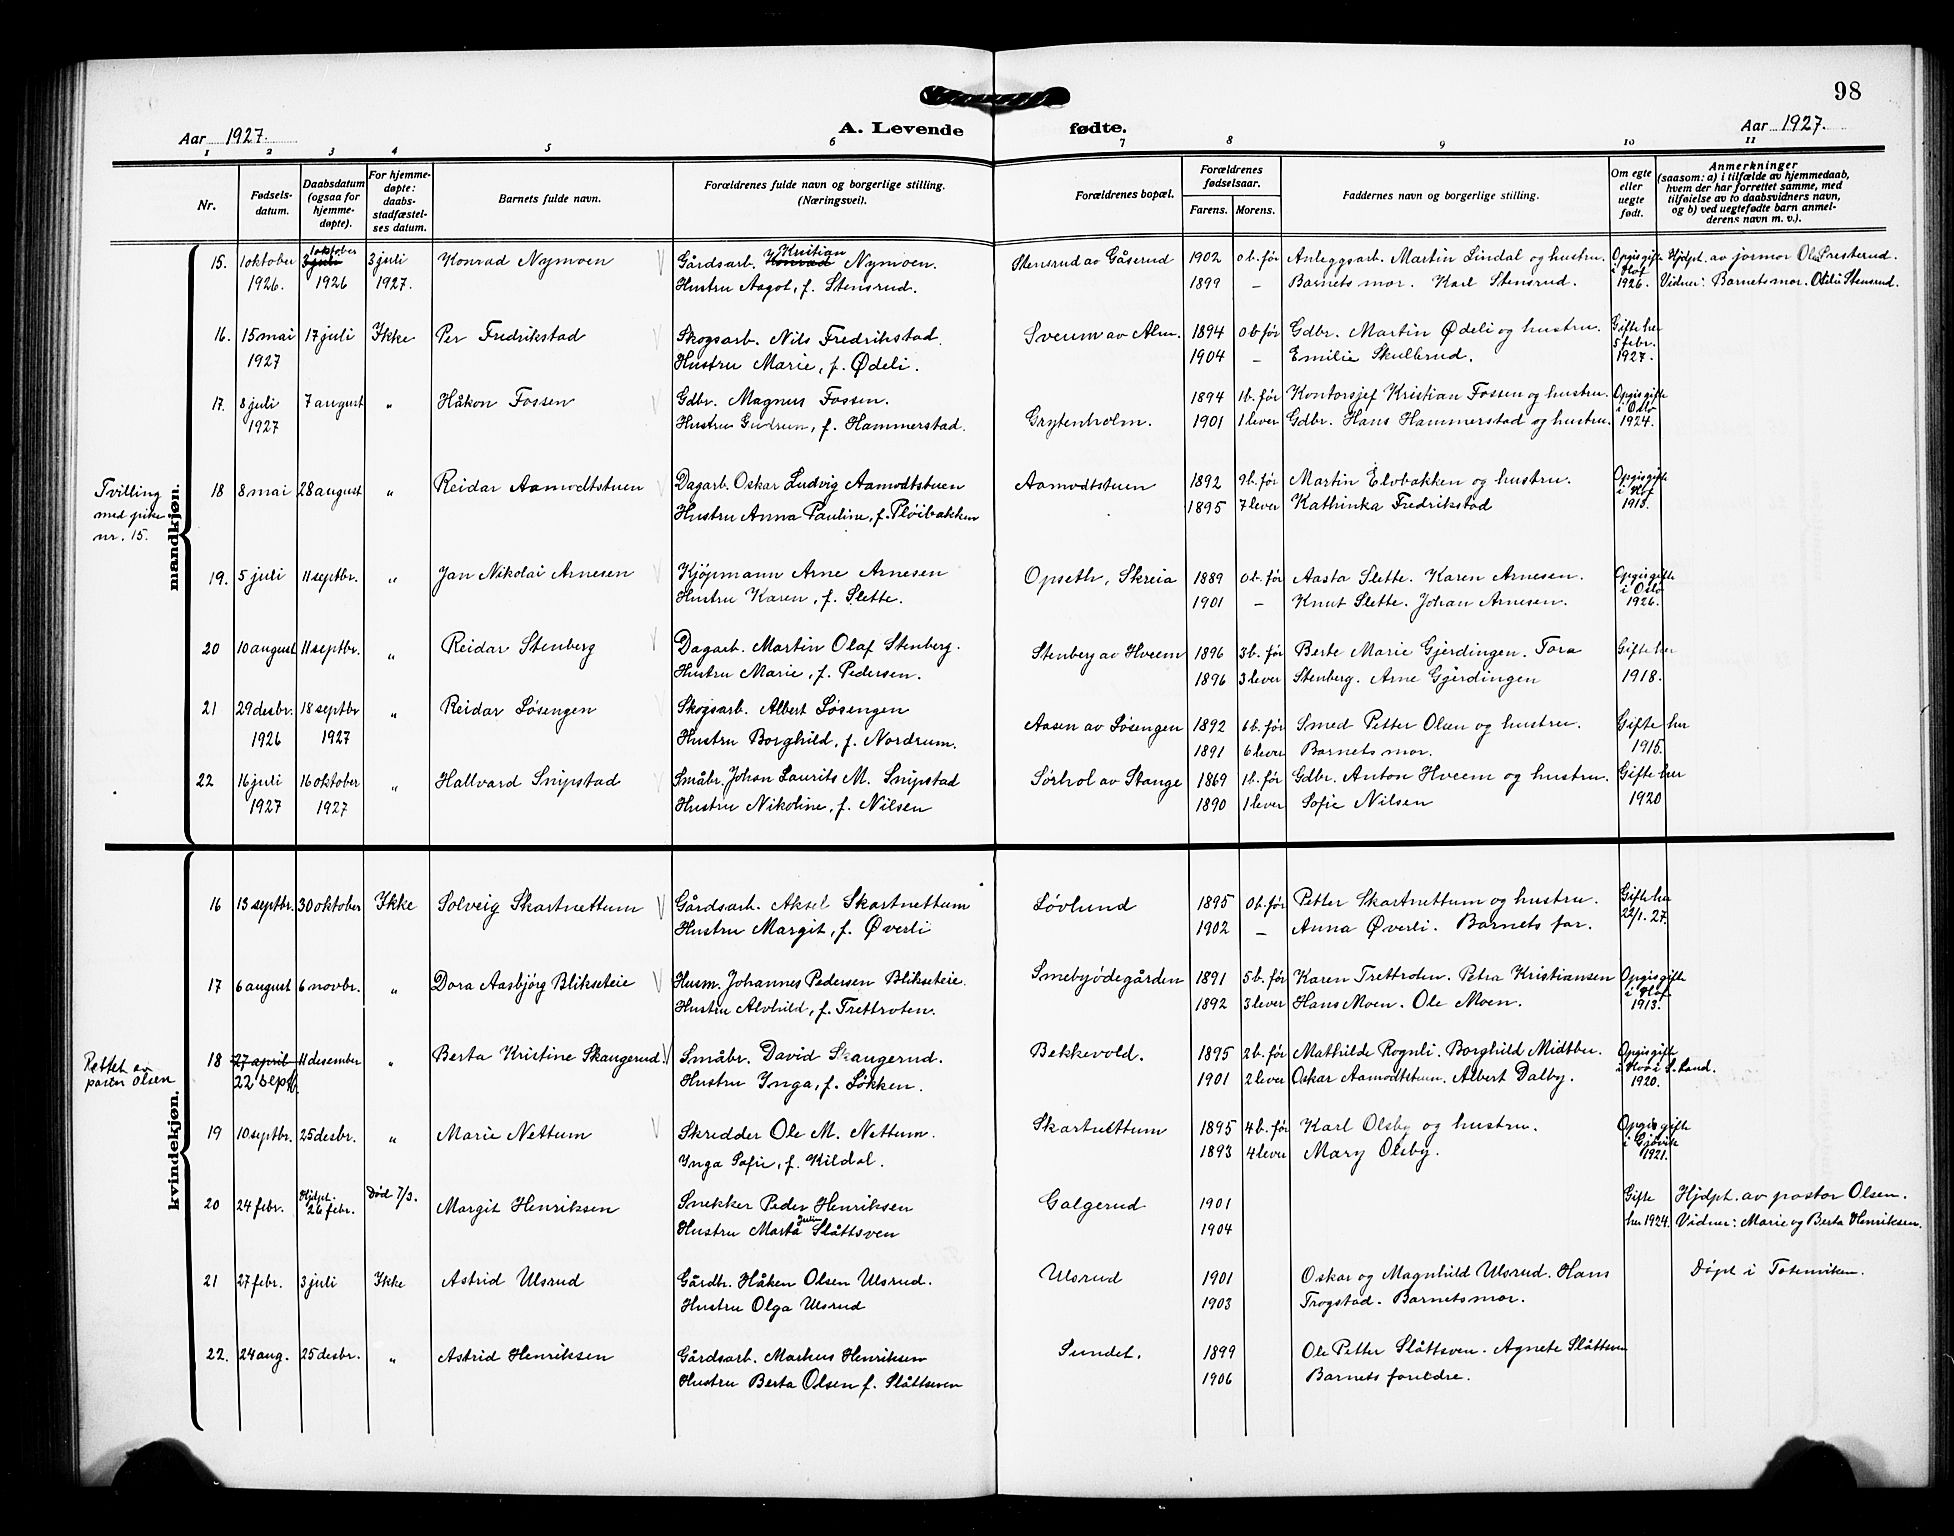 98
Aar 1927. A. Levende fødte. Aar 1927.
1 2 3 4 5 6 7 8 9 10 11
Nr.
Fødsels-
datum.
Daabsdatum
(ogsaa for
hjemme-
døpte).
For hjemme-
døpte:
daabs-
stadfæstel-
ses datum.
Barnets fulde navn.
Forældrenes fulde navn og borgerlige stilling.
(Næringsvei).
Forældrenes bopæl.
Forældrenes
fødselsaar.
Farens. Morens.
Faddernes navn og borgerlige stilling.
Om egte
eller
uegte
født.
Anmerkninger
(saasom: a) i tilfælde av hjemmedaab,
hvem der har forrettet samme, med
tilføielse av to daabsvidners navn,
og b) ved uegtefødte barn anmel-
derens navn m. v.).
mandkjøn.
15. 1 oktober 1 oktober 3 juli 3 juli Konrad Nymoen Gårdsarb. Konrad Kristian Nymoen. Stensrud av Gåserud 1902 0 b. før Anleggsarb. Martin Lindal og hustru. Opgis gifte Hjdpt. av jormor Presterud.
1926. 1926 1927. Hustru Aagot, f. Stensrud. 1899 – Barnets mor. Karl Stensrud. i Hof 1926. Vidner: Barnets mor. Otilie Stensrud.
16. 15 mai 17 juli Ikke Per Fredrikstad Skogsarb. Nils Fredrikstad. Sveum av Alm. 1894 0 b. før Gdbr. Martin Ødeli og hustru. Gifte her
1927 Hustru Marie, f. Ødeli. 1904 – Emilie Skulbrud. 5 febr. 1927.
17. 8 juli 7 august " Håkon Fossen Gdbr. Magnus Fossen. 1894 1 b. før Kontorsjef Kristian Fossen og hustru. Opgis gifte
1927 Hustru Gudrun, f. Hammerstad. Grytenholm. 1901 1 lever Gdbr. Hans Hammerstad og hustru. i Oslo 1924.
Tvilling
med pike
nr. 15.
18 8 mai 28 august " Reidar Aamodtstuen Dagarb. Oskar Ludvig Aamodtstuen Aamodtstuen 1892 9 b. før Martin Elvbakken og hustru. Opgis gifte
Hustru Anna Pauline, f. Pløibakken 1895 7 lever Kathinka Fredrikstad i Hof 1913.
19. 5 juli 11 septbr. " Jan Nikolai Arnesen Kjøpmann Arne Arnesen Opseth, Skreia 1889 0 b. før Aasta Slette. Karen Arnesen. Opgis gifte
Hustru Karen, f. Slette. 1901 – Knut Slette. Johan Arnesen. i Oslo 1926.
20 10 august 11 septbr. " Reidar Stenberg Dagarb. Martin Olaf Stenberg. Stenberg av Hveem 1896 3 b. før Berte Marie Gjerdingen. Tora Gifte her
Hustru Marie, f. Pedersen. 1896 3 lever Stenberg. Arne Gjerdingen 1918.
21 29 desbr. 18 septbr " Reidar Løsengen Skogsarb. Albert Løsengen Aasen av Løsengen 1892 6 b. før Smed Petter Olsen og hustru. Gifte her
1926 1927 Hustru Borghild, f. Nordrum. 1891 6 lever Barnets mor. 1915.
22 16 juli 16 oktober " Hallvard Snipstad Småbr. Johan Laurits M. Snipstad Sørhol av Stange 1869 1 b. før Gdbr. Anton Hveem og hustru. Gifte her
1927 1927 Hustru Nikoline, f. Nilsen 1890 1 lever Sofie Nilsen 1920
kvindekjøn.
16 13 septbr. 30 oktober Ikke Solveig Skartnettum Gårdsarb. Aksel Skartnettum Løvlund 1895 0 b. før Petter Skartnettum og hustru. Gifte her
Hustru Margit, f. Øverli 1902 – Anna Øverli. Barnets far. 22/1. 27.
17 6 august 6 novbr. " Dora Aasbjørg Blikseteie Husm. Johannes Pedersen Blikseteie. Smebyødegården 1891 5 b. før Karen Trettroten. Petra Kristiansen Opgis gifte
Hustru Alvhild, f. Trettroten. 1892 3 lever Hans Moen. Ole Moen. i Hof 1913.
Rettet av
pastor Olsen
18 27 april 11 desember " Berta Kristine Skangerud. Småbr. David Skangerud. Bekkevold. 1895 2 b. før Mathilde Rognli. Borghild Midtbø. Opgis gifte
22 septb. Hustru Ynga, f. Løkken. 1901 2 lever Oskar Aamodtstuen. Albert Dalby. S. Land. 1920.
19 10 septbr. 25 desbr. " Marie Nettum Skredder Ole M. Nettum. Skartnettum 1895 4 b. før Karl Olsby og hustru. Opgis gifte
Ynga Sofie, f. Kildal. 1893 4 lever Mary Olsby. i Gjøvik 1921.
20 24 febr. Hjdpt. 26 febr. Død 7/3. Margit Henriksen Snekker Peder Henriksen Galgerud 1901 Gifte Hjdpt. av pastor Olsen.
Hustru Marta Julie Slåttsven 1904 her 1924. Vidner: Marie og Berta Henriksen.
21 27 febr. 3 juli Ikke Astrid Ulsrud Gårdbr. Håken Olsen Ulsrud. Ulsrud 1901 Oskar og Magnhild Ulsrud. Hans Døpt i Totenviken.
Hustru Olga Ulsrud 1903 Trogstad. Barnets mor.
22. 24 aug. 25 desbr. " Astrid Henriksen Gårdsarb. Markus Henriksen Sundet. 1899 Ole Petter Slåttsven. Agnete Slåttsven
Hustru Berta Olsen f. Slåttsven 1906 Barnets foreldre.